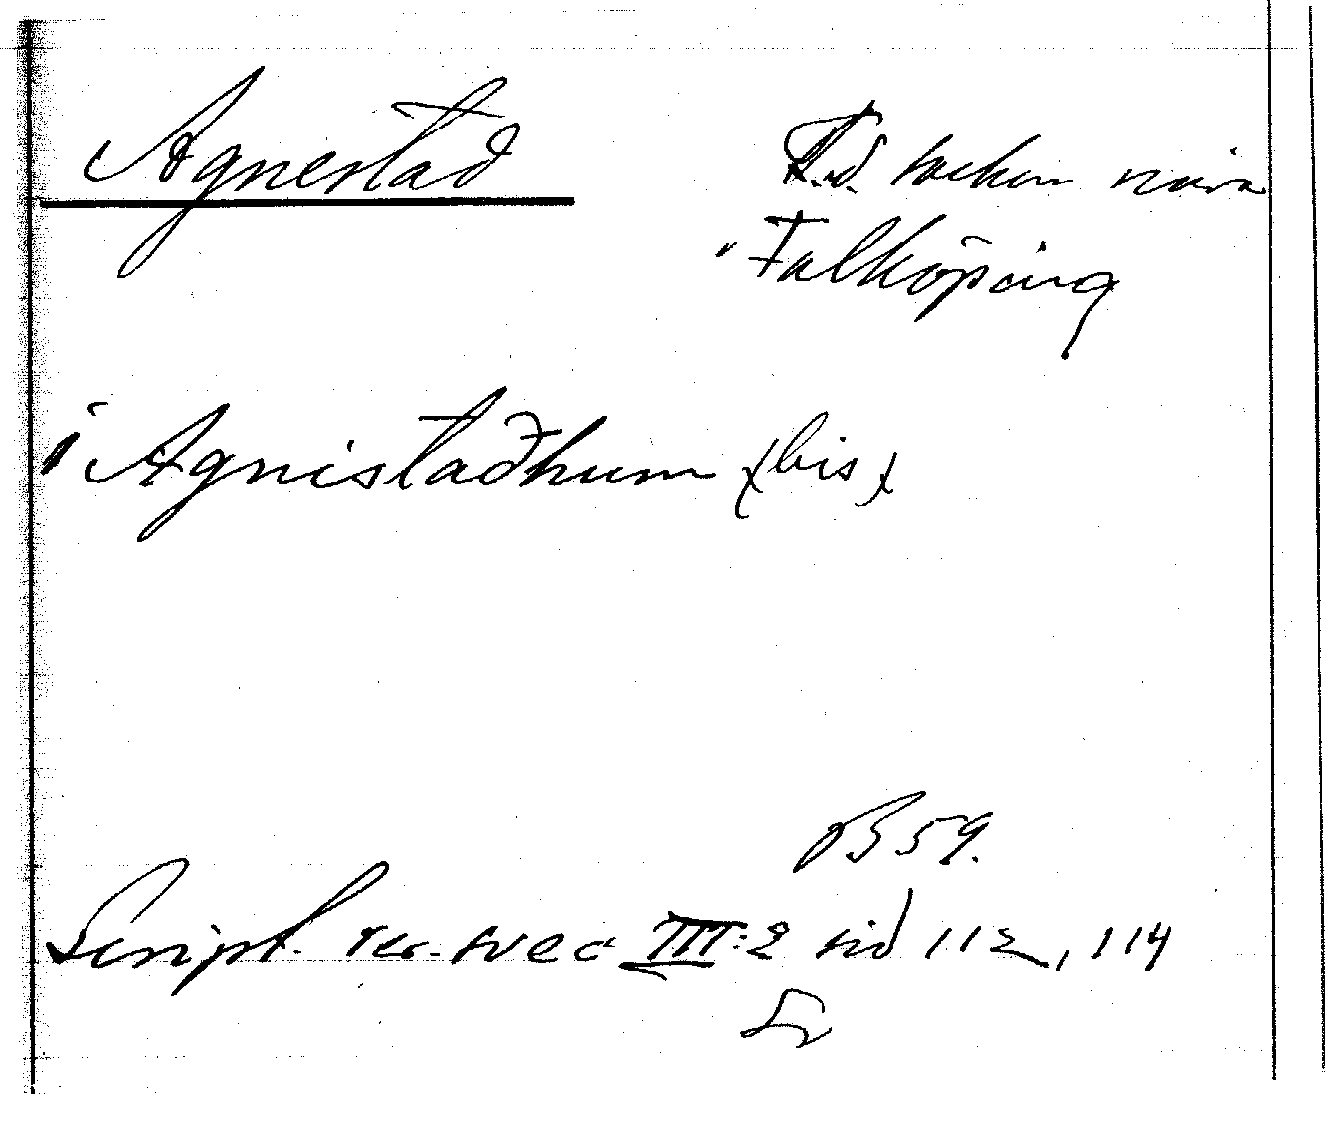 Agnestad
F.d. socken nära
Falköping
i Agnistadhum (bis)
B 59.
Script. rer. svec III:2 sid 112, 114